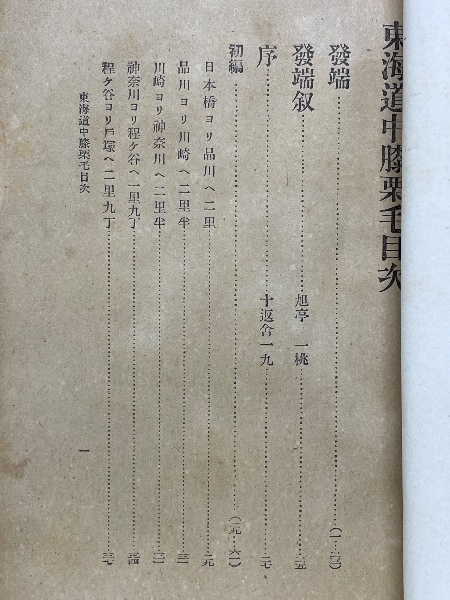 東海道中膝栗毛目次
發端……(一–二四)
發端叙　旭亭　一桃……二五
序　十返舍一九……二七
初編……(二九–六一)
日本橋ヨリ品川ヘ二里……二九
品川ヨリ川崎ヘ二里半……三一
川崎ヨリ神奈川ヘ二里半……三二
神奈川ヨリ程ケ谷ヘ一里九丁……三四
程ケ谷ヨリ戸塚ヘ二里九丁……三七
東海道中膝栗毛目次
一